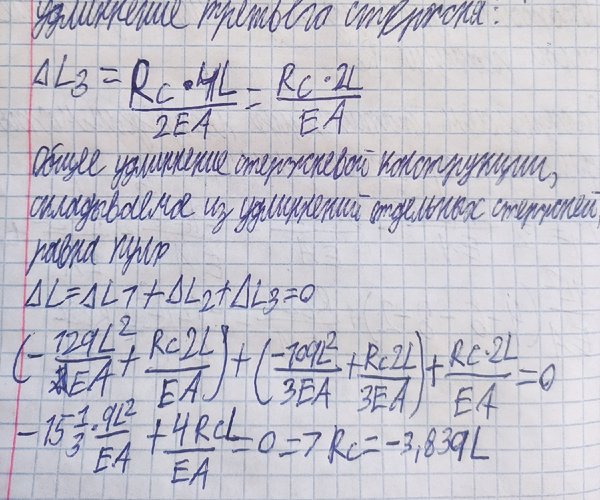 удлинение третьего стержня:
ΔL3 = Rc·4L/2EA = Rc·2L/EA
Общее удлинение стержневой конструкции,
складываемое из удлинений отдельных стержней,
равна нулю
ΔL=ΔL1+ΔL2+ΔL3=0
(-12qL²/EA + Rc2L/EA) + (-10qL²/3EA + Rc2L/3EA) + Rc·2L/EA = 0
-15 1/3·qL²/EA + 4RcL/EA = 0 => Rc = -3,83qL